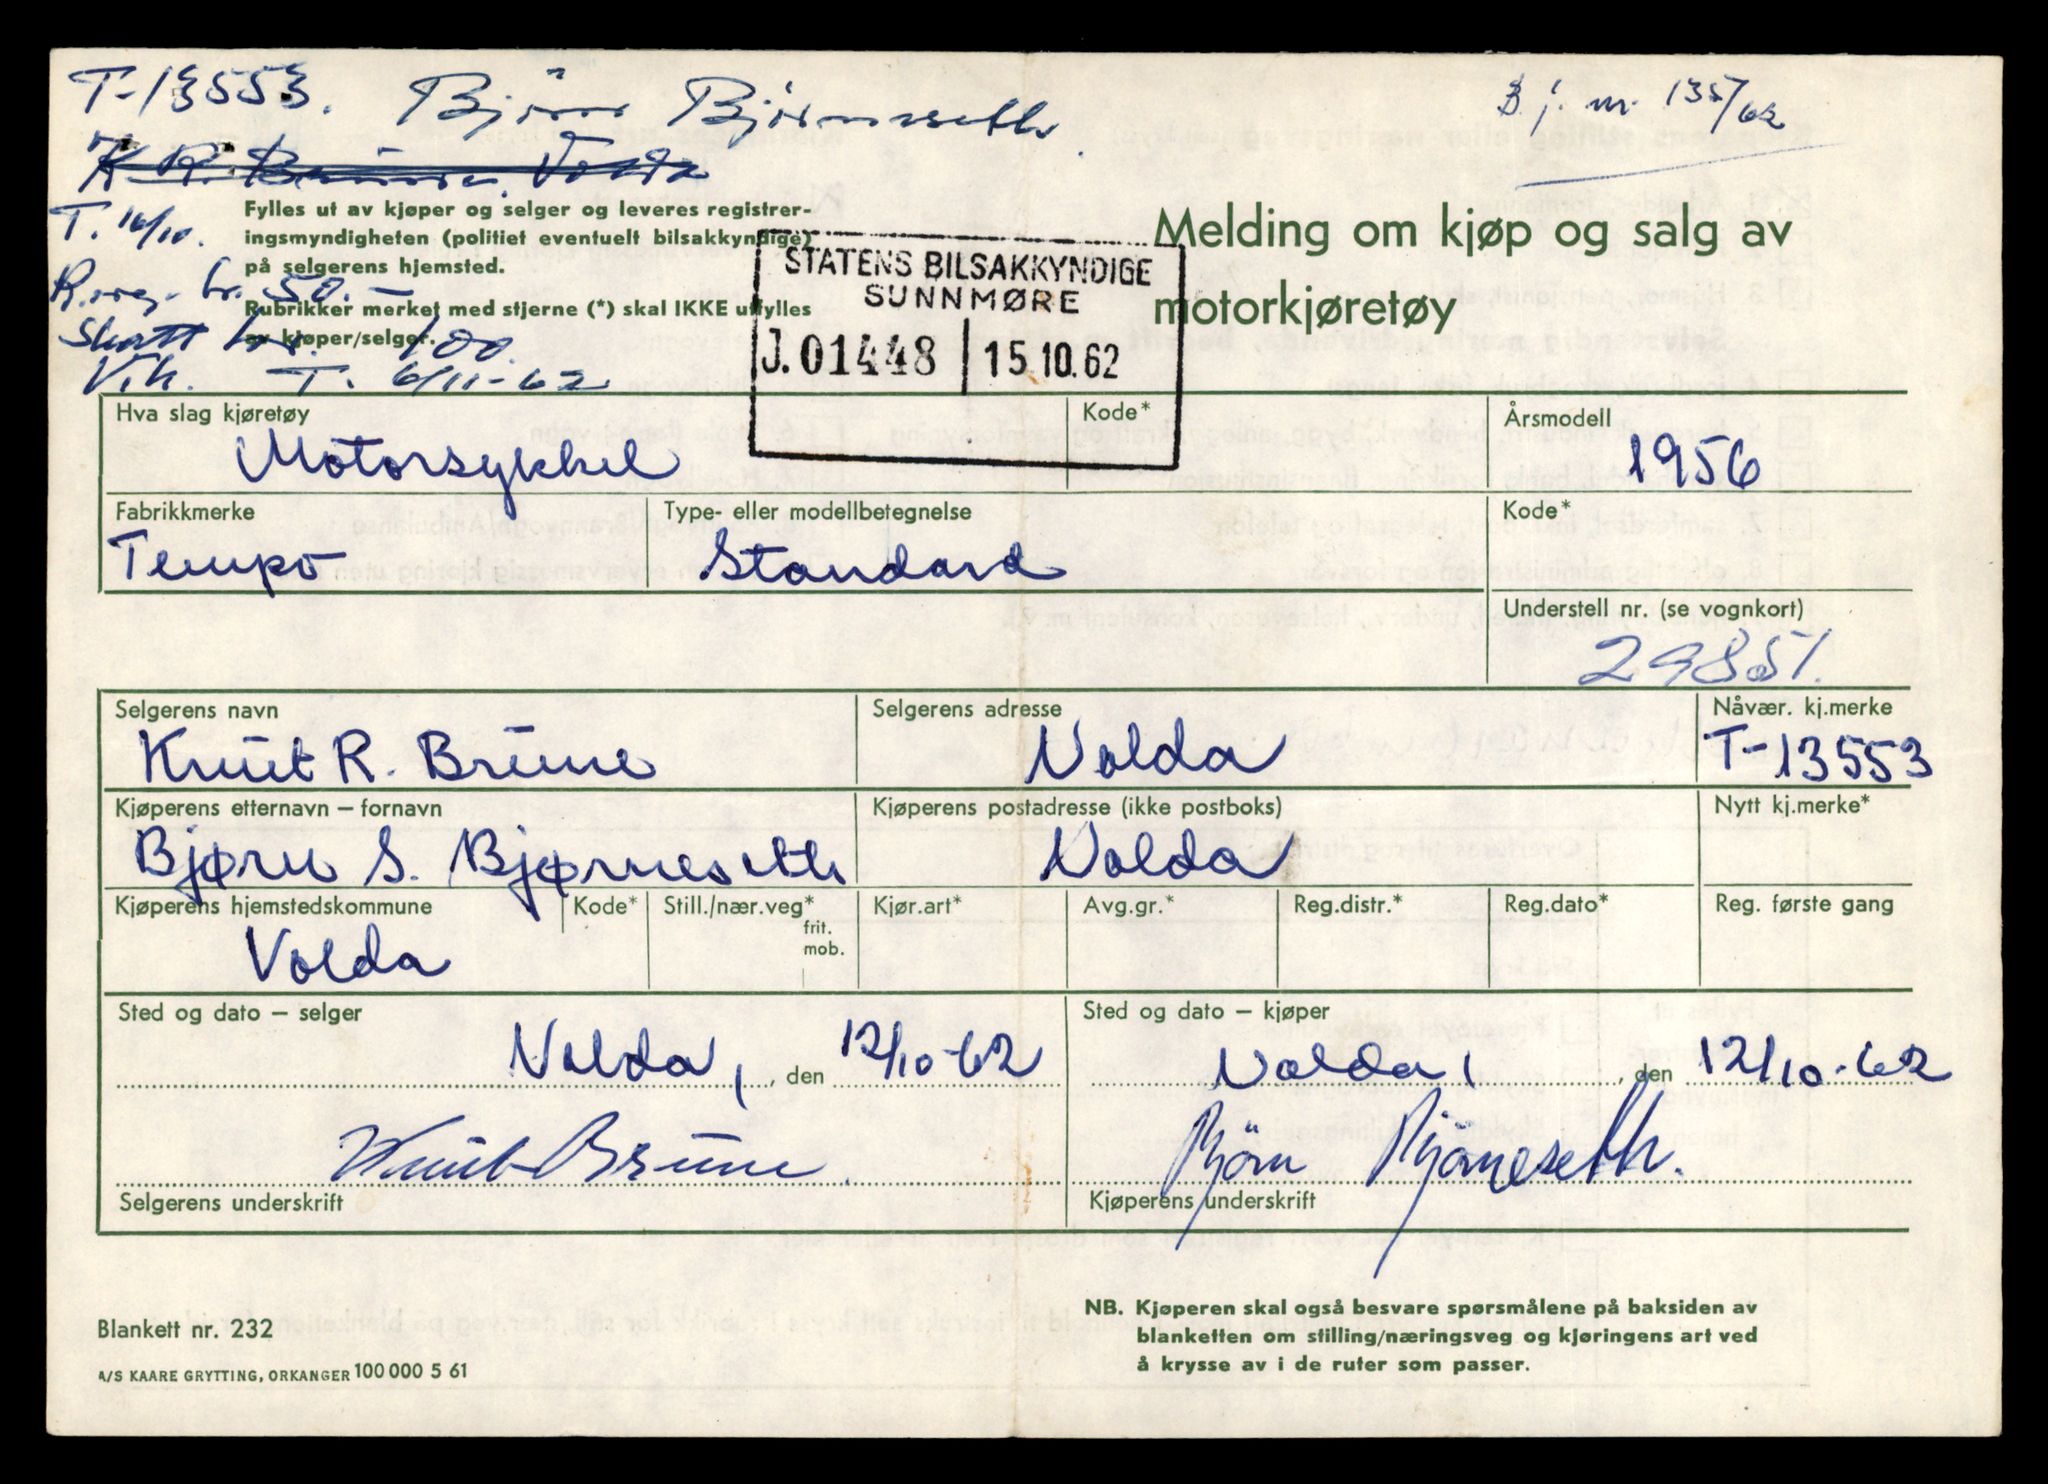 T-13553. Björn Björneseth.
Bj. nr. 135/62
K. R. Brune, Volda
T. 16/10.
Fylles ut av kjøper og selger og leveres registrer-
ingsmyndigheten (politiet eventuelt bilsakkyndige)
på selgerens hjemsted.
R.reg. kr. 50.-
Rubrikker merket med stjerne (*) skal IKKE utfylles
av kjøper/selger.
Skatt kr. 100.
T. 6/11-62
Melding om kjøp og salg av
motorkjøretøy
STATENS BILSAKKYNDIGE
SUNNMØRE
J. 01448 15.10.62
Hva slag kjøretøy Kode* Årsmodell
Motorsykkel 1956
Fabrikkmerke Type- eller modellbetegnelse Kode*
Tempo Standard
Understell nr. (se vognkort)
29851.
Selgerens navn Selgerens adresse Nåvær. kj.merke
Knut R. Brune Volda T-13553
Kjøperens etternavn – fornavn Kjøperens postadresse (ikke postboks) Nytt kj.merke*
Bjørn S. Bjørneseth Volda
Kjøperens hjemstedskommune Kode* Still./nær.veg* Kjør.art* Avg.gr.* Reg.distr.* Reg.dato* Reg. første gang
frit.
mob.
Volda
Sted og dato – selger Sted og dato – kjøper
Volda, den 12/10-62 Volda, den 12/10-62
Knut Brune. Björn Björneseth.
Selgerens underskrift Kjøperens underskrift
NB. Kjøperen skal også besvare spørsmålene på baksiden av
blanketten om stilling/næringsveg og kjøringens art ved
å krysse av i de ruter som passer.
Blankett nr. 232
A/S KAARE GRYTTING, ORKANGER 100 000 5 61